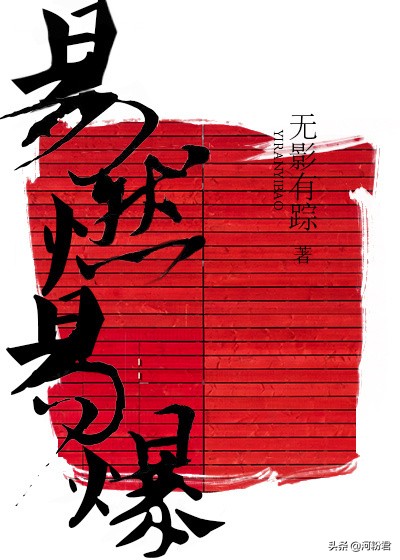 易燃易爆
无影有踪 著
YIRANYIBAO
头条 @河粉君